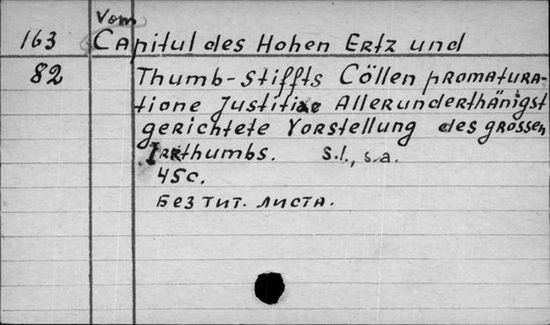 Vom
163 Capitul des Hohen Ertz und
82 Thumb-Stiffts Cöllen pro matura-
tione Justitiae Allerunderthänigst
gerichtete Vorstellung des grossen
Irrthumbs. s.l., s.a.
45c.
Без тит. листа.